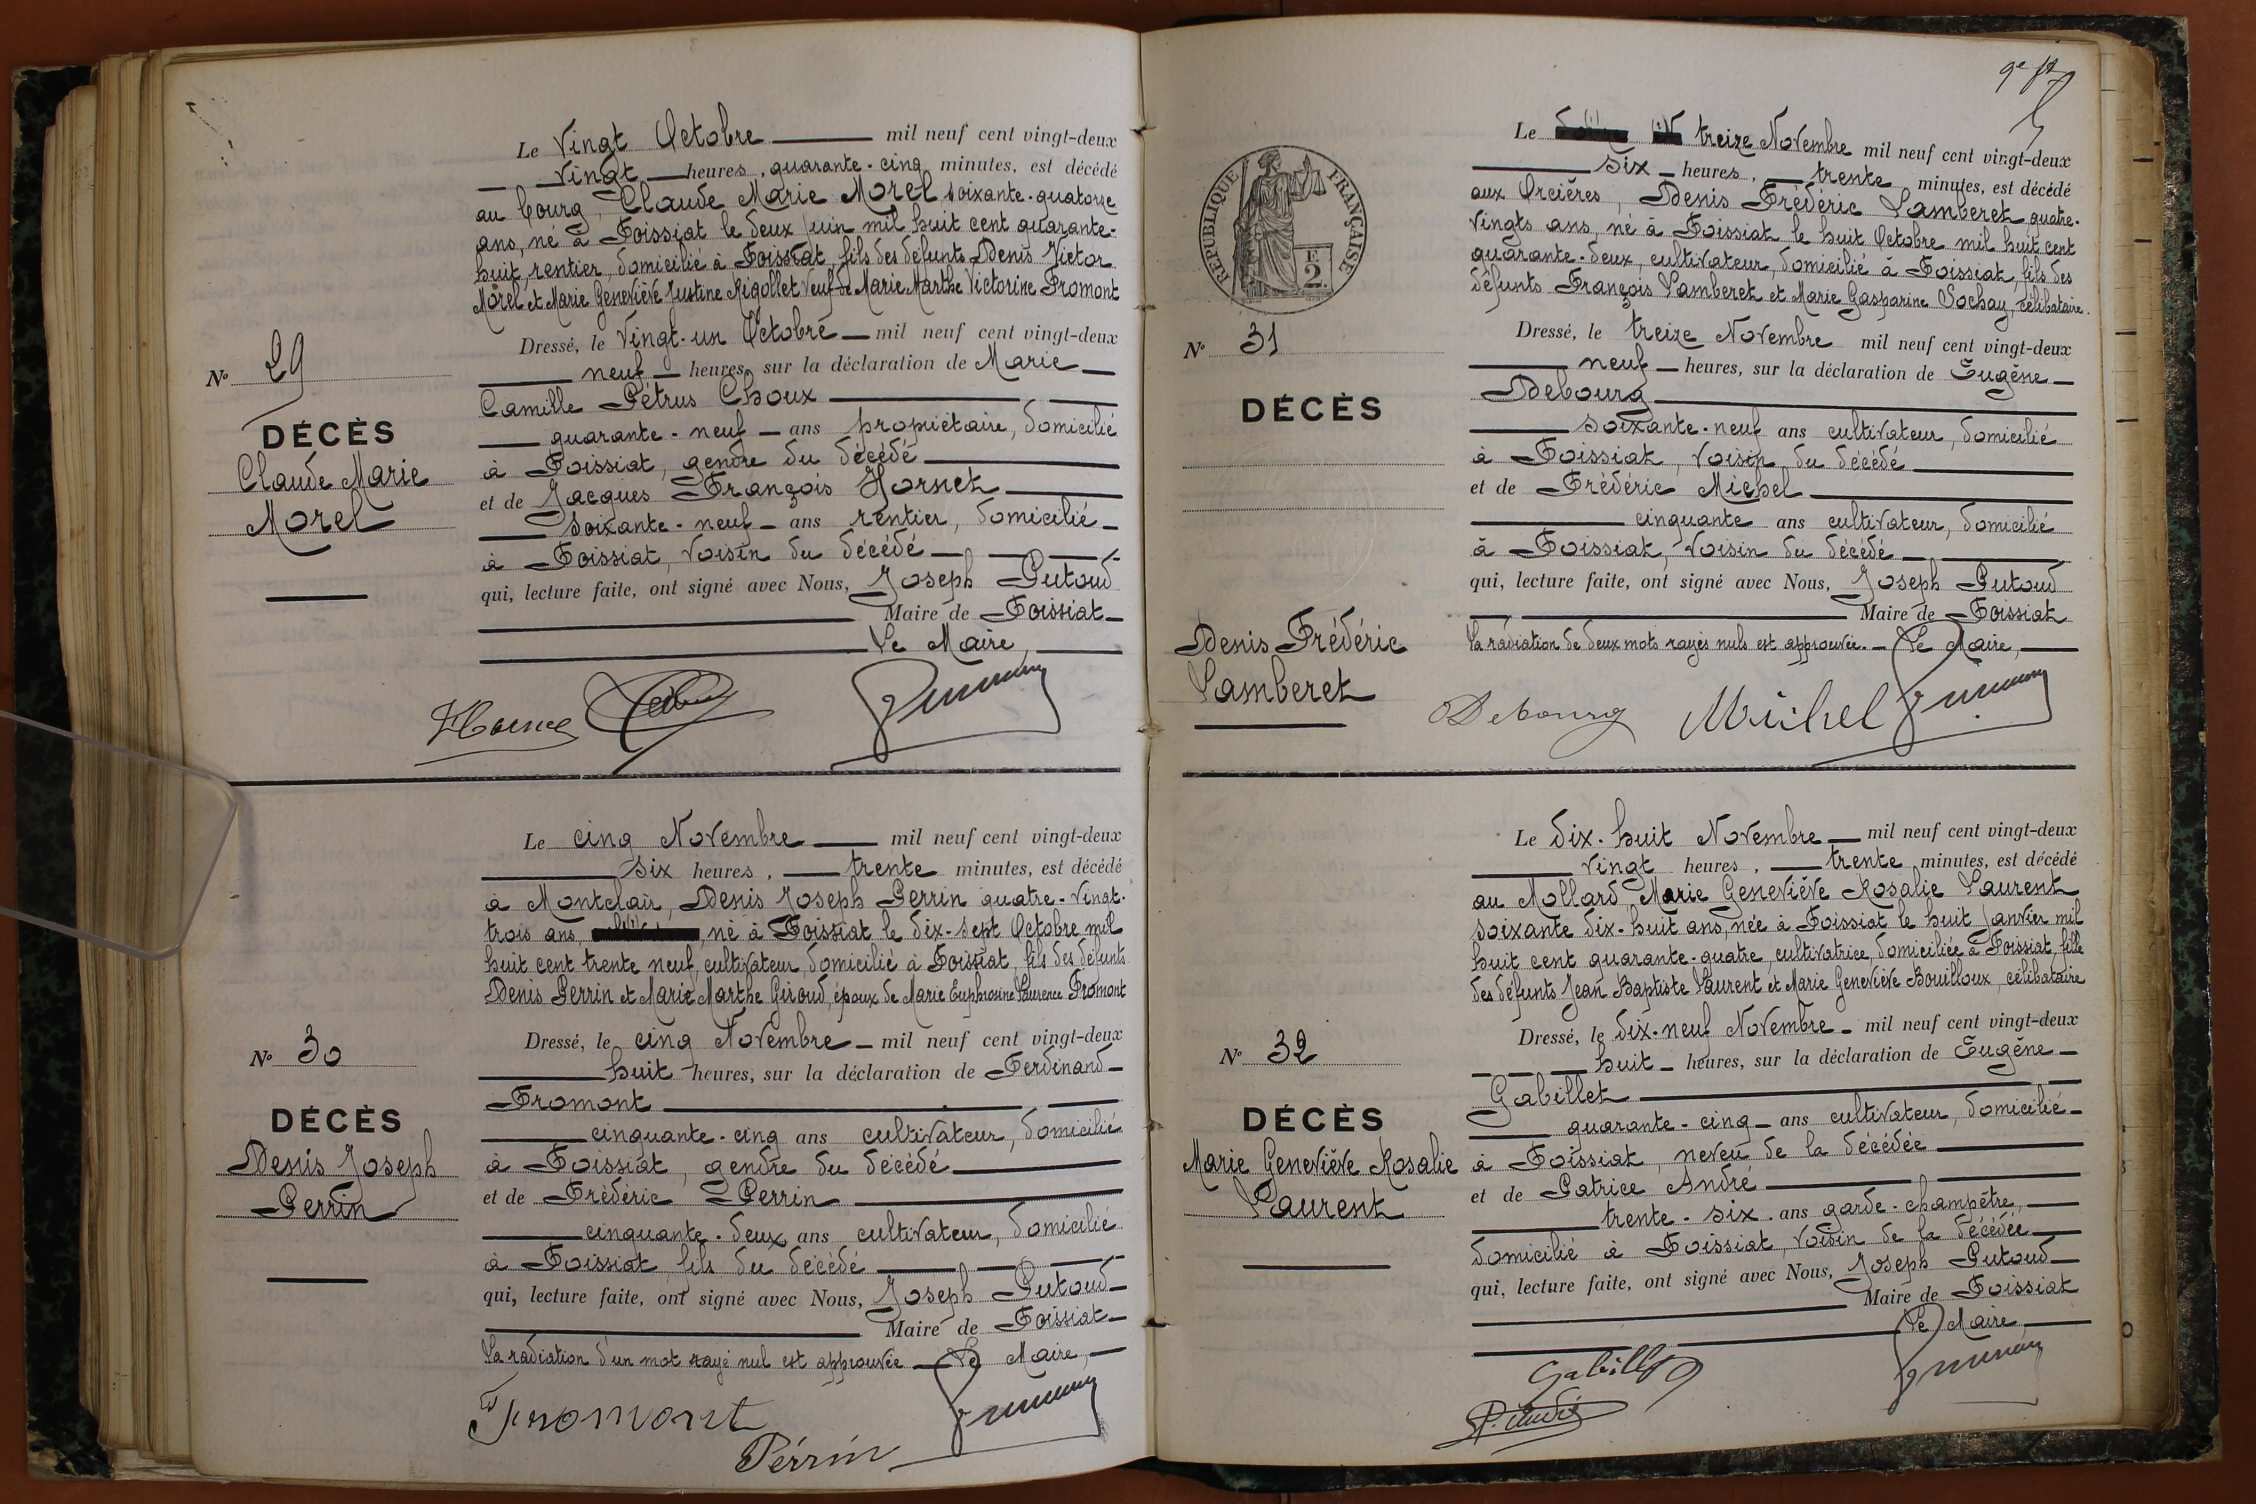 Le Vingt Octobre mil neuf cent vingt-deux
Vingt heures, quarante-cinq minutes, est décédé
au bourg, Claude Marie Morel soixante-quatorze
ans, né à Foissiat le deux Juin mil huit cent quarante-
huit, rentier, domicilié à Foissiat, fils des défunts Denis Victor
Morel et Marie Geneviève Justine Rigollet Veuf de Marie Marthe Victorine Fromont
Dressé, le Vingt-un Octobre mil neuf cent vingt-deux
neuf heures, sur la déclaration de Marie
Camille Pétrus Choux
quarante-neuf ans propriétaire, domicilié
à Foissiat, gendre du décédé
et de Jacques François Hornet
soixante-neuf ans rentier, domicilié
à Foissiat, Voisin du décédé
qui, lecture faite, ont signé avec Nous, Joseph Putoud
Maire de Foissiat
Le Maire,
N° 29
DÉCÈS
Claude Marie
Morel
Le cinq Novembre mil neuf cent vingt-deux
six heures, trente minutes, est décédé
à Montclair, Denis Joseph Perrin quatre-vingt-
trois ans, né à Foissiat le dix-sept Octobre mil
huit cent trente neuf, cultivateur, domicilié à Foissiat, fils des défunts
Denis Perrin et Marie Marthe Giroud, époux de Marie Euphrosine Laurence Fromont
Dressé, le cinq Novembre mil neuf cent vingt-deux
huit heures, sur la déclaration de Ferdinand
Fromont
cinquante-cinq ans cultivateur, domicilié
à Foissiat, gendre du décédé
et de Frédéric Perrin
cinquante-deux ans cultivateur, domicilié
à Foissiat, fils du décédé
qui, lecture faite, ont signé avec Nous, Joseph Putoud
Maire de Foissiat
La radiation d'un mot rayé nul est approuvée Le Maire,
Fromont
Perrin
N° 30
DÉCÈS
Denis Joseph
Perrin
RÉPUBLIQUE FRANÇAISE
E
2.
Le treize Novembre mil neuf cent vingt-deux
six heures, trente minutes, est décédé
aux Orcières, Denis Frédéric Lamberet quatre-
vingts ans, né à Foissiat le huit Octobre mil huit cent
quarante-deux, cultivateur, domicilié à Foissiat, fils des
défunts François Lamberet et Marie Gasparine Sochay, célibataire.
Dressé, le treize Novembre mil neuf cent vingt-deux
neuf heures, sur la déclaration de Eugène
Debourg
soixante-neuf ans cultivateur, domicilié
à Foissiat, Voisin du décédé
et de Frédéric Michel
cinquante ans cultivateur, domicilié
à Foissiat, Voisin du décédé
qui, lecture faite, ont signé avec Nous, Joseph Putoud
Maire de Foissiat
La radiation de deux mots rayés nuls est approuvée. Le Maire,
Debourg Michel
N° 31
DÉCÈS
Denis Frédéric
Lamberet
Le dix-huit Novembre mil neuf cent vingt-deux
vingt heures, trente minutes, est décédé
au Mollard, Marie Geneviève Rosalie Laurent
soixante dix-huit ans, née à Foissiat le huit Janvier mil
huit cent quarante-quatre, cultivatrice, domiciliée à Foissiat, fille
des défunts Jean Baptiste Laurent et Marie Geneviève Bouilloux, célibataire
Dressé, le dix-neuf Novembre mil neuf cent vingt-deux
huit heures, sur la déclaration de Eugène
Gabillet
quarante-cinq ans cultivateur, domicilié
à Foissiat, neveu de la décédée
et de Patrice André
trente-six ans garde-champêtre,
domicilié à Foissiat, voisin de la décédée
qui, lecture faite, ont signé avec Nous, Joseph Putoud
Maire de Foissiat
Le Maire
Gabillet
P. André
N° 32
DÉCÈS
Marie Geneviève Rosalie
Laurent